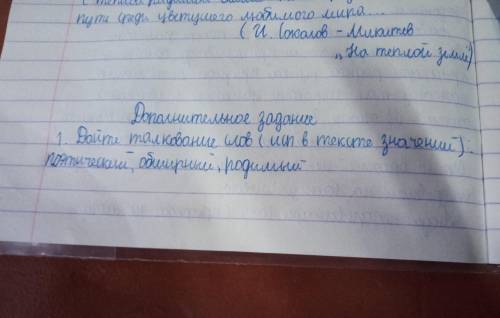 пути среди цветущего любимого мира...
( И. Соколов - Микитов
„На теплой земле")
Дополнительное задание
1. Дайте толкование слов (исп в тексте значении):
поэтический, обширный, родимый